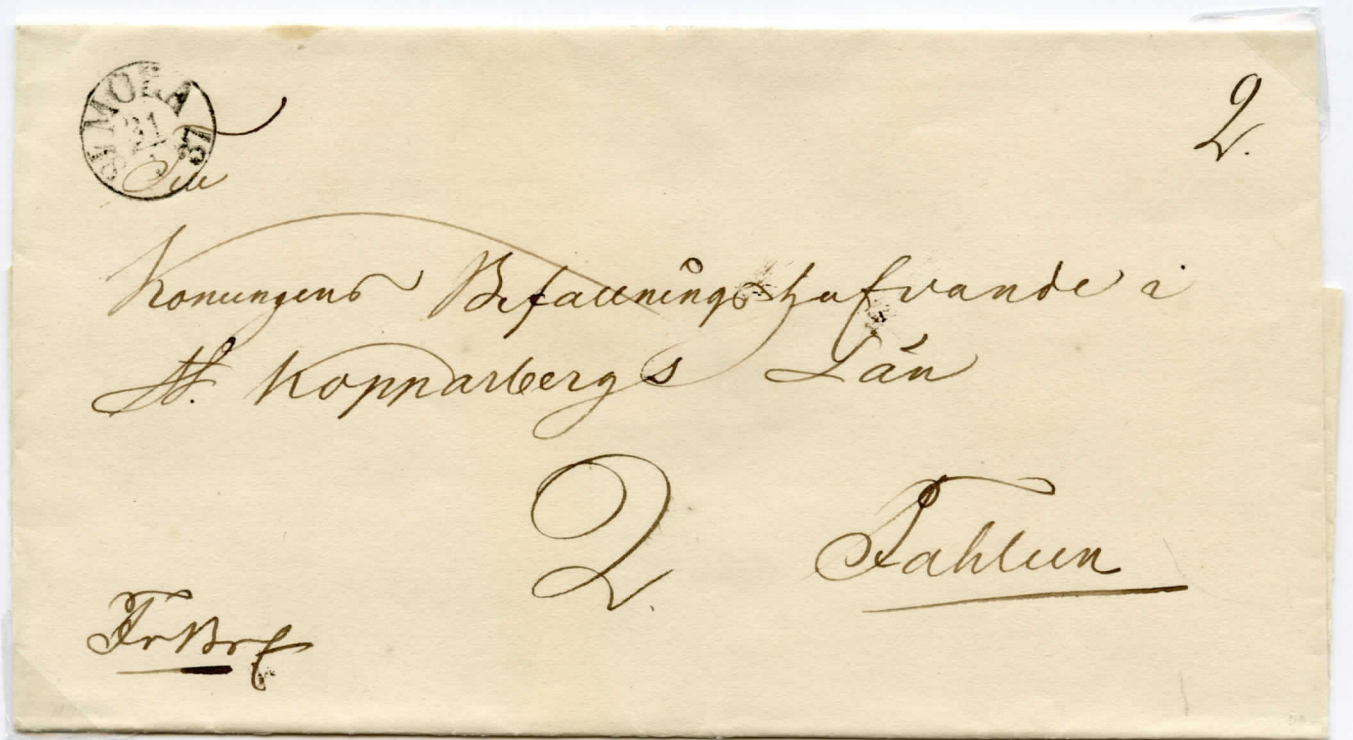 MORA
31
1
1873
2.
Till
Konungens Befallningshafvande i
St. Kopparbergs Län
2.
Fahlun
FrBrf